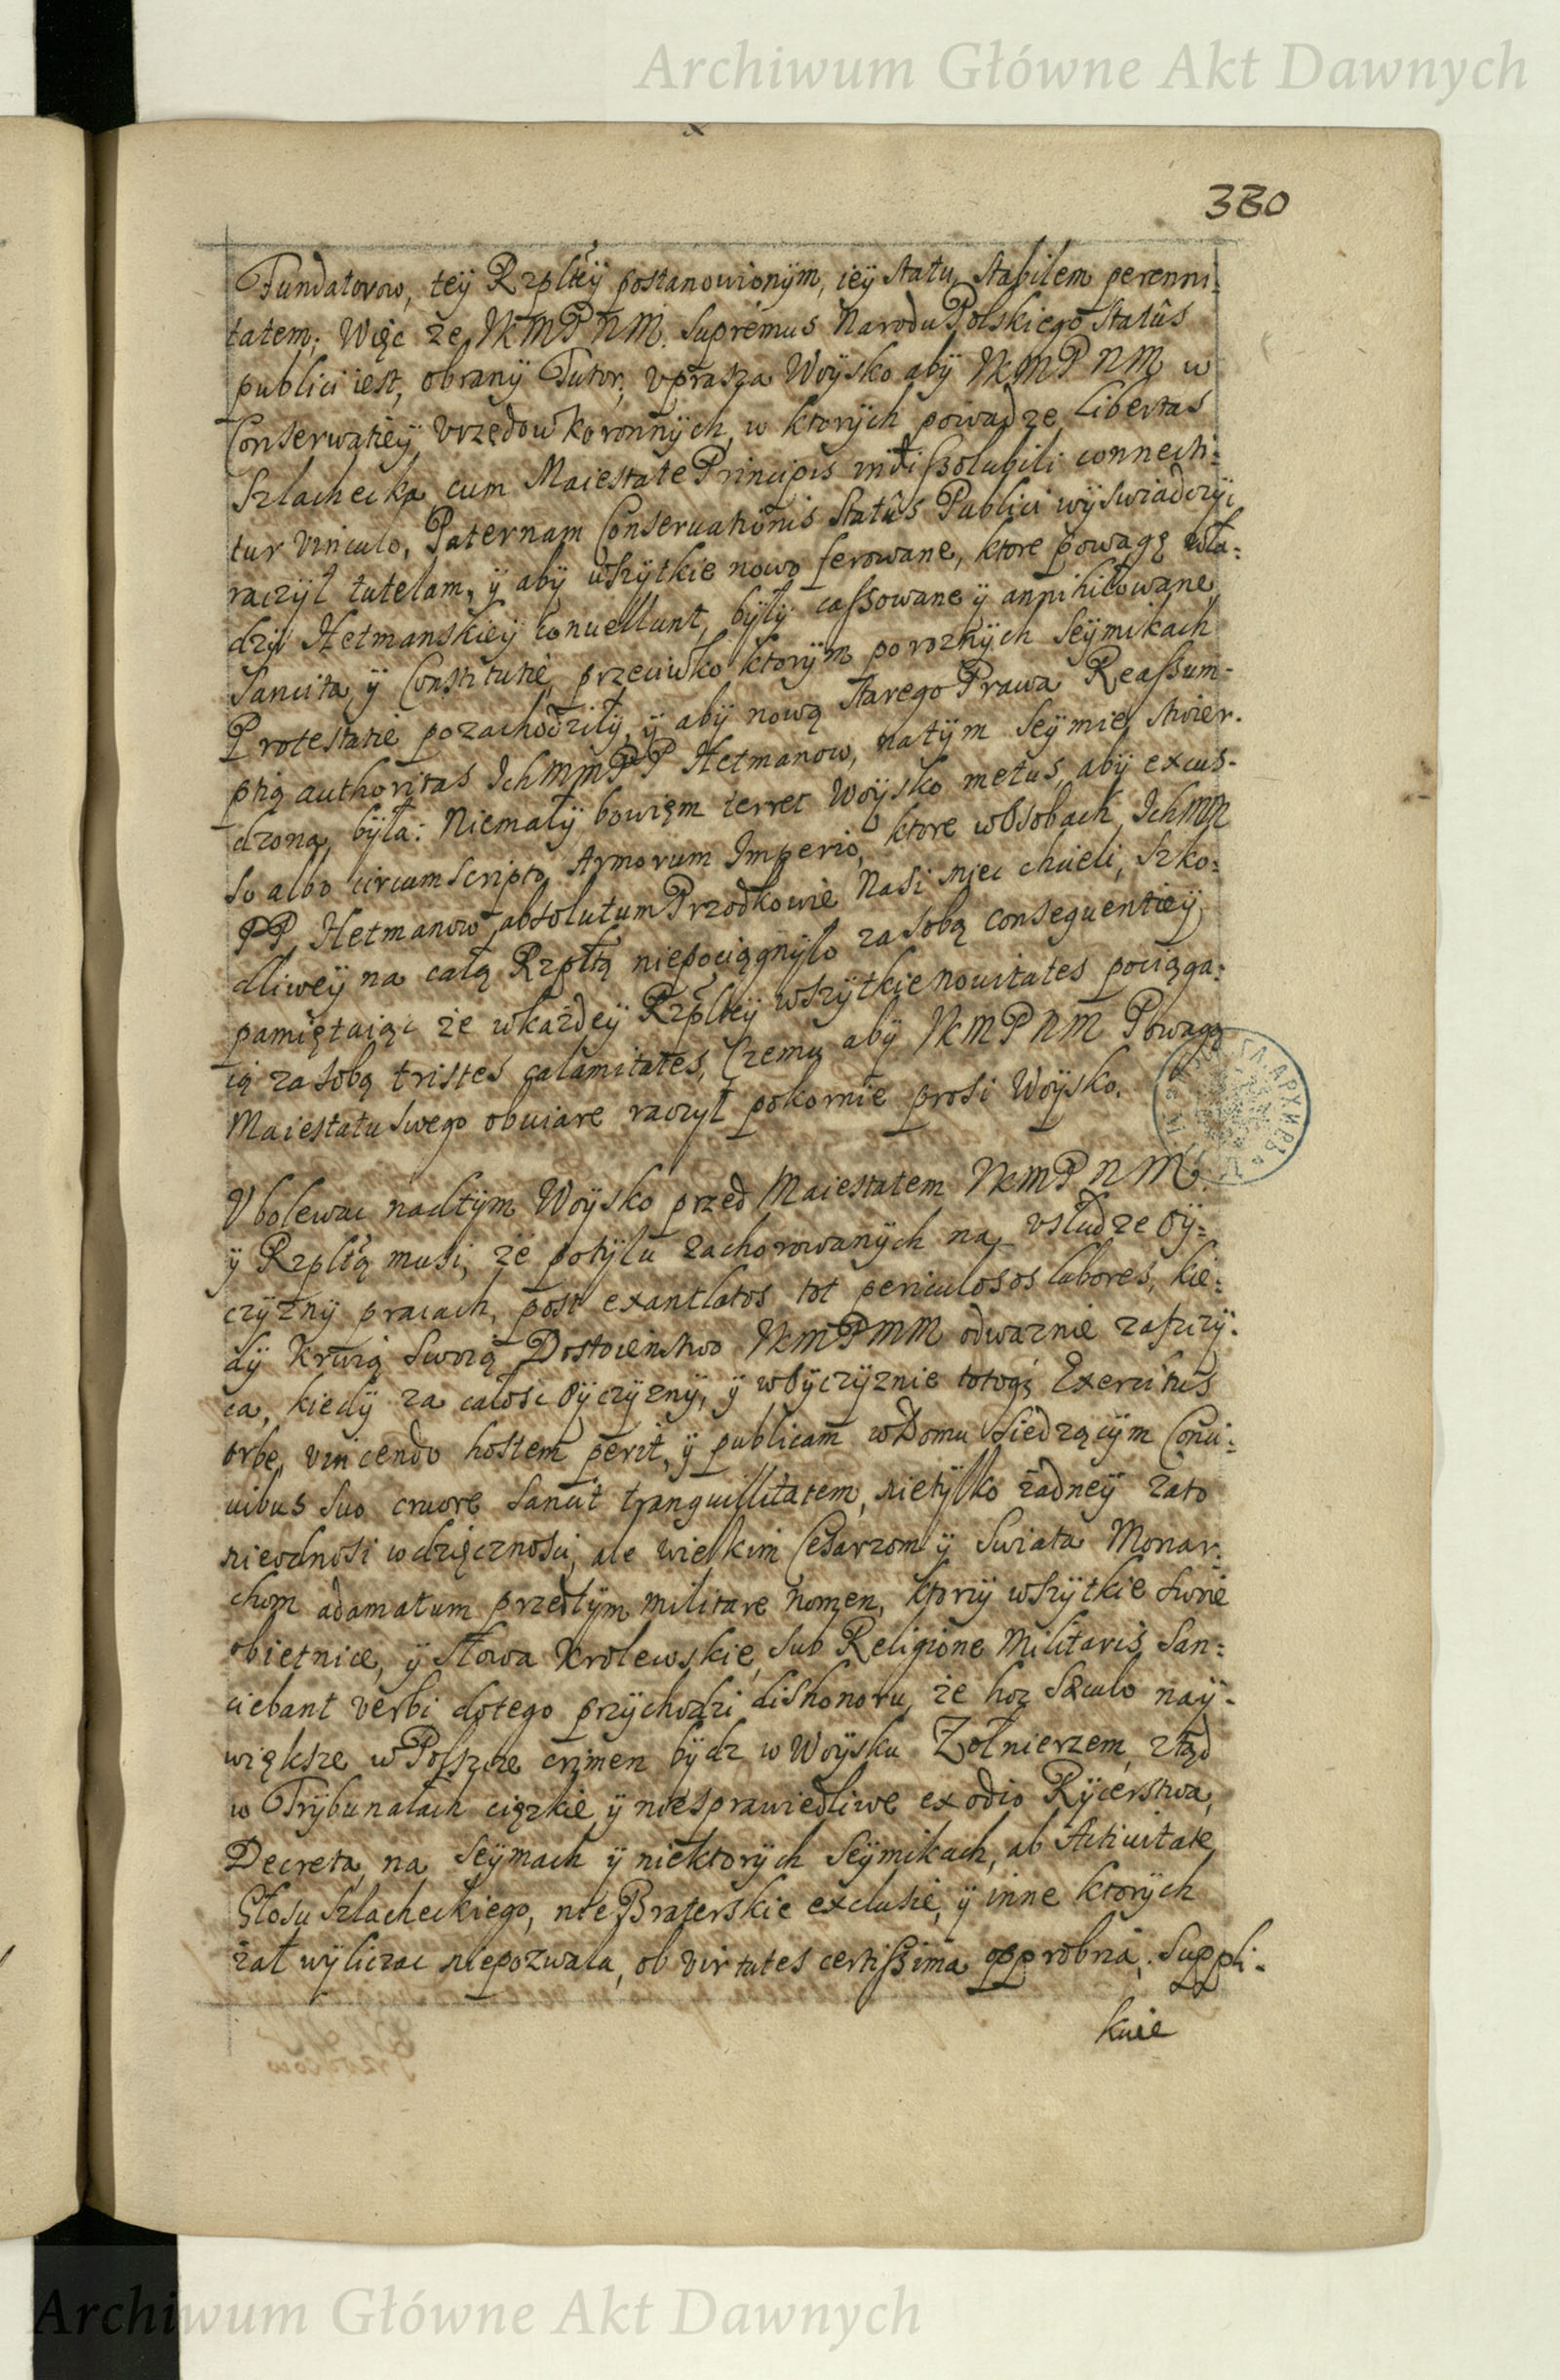 Archiwum Główne Akt Dawnych
330
Fundatorow, teÿ Rzpltëÿ postanowionÿm, ieÿ statu, stabilem perenni:
tatem; Więc że JKMPNM. Supremus Narodu Polskiego Statûs
publici iest, obranÿ Tutor, vprasza Woÿsko abÿ JKMPNM w
Conserwatieÿ vrzędow koronnÿch, w ktorÿch powadze Libertas
Szlachecka, cum Maiestate Principis indissolubili connecti:
tur vinculo, Paternam Conseruationis Statûs Publici wÿswiadczÿć
raczÿł tutelam, ÿ abÿ wszÿtkie nowo ferowane, ktore powagę wła:
dzÿ Hetmanskieÿ conuellunt, bÿłÿ cassowane ÿ annihilowane
Sancita, ÿ Constitutie, przeciwko ktorÿm po roznÿch Seÿmikach
Protestatie pozachodziłÿ, ÿ abÿ nową starego Prawa Reassum-
ptią authoritas IchMMPP Hetmanow, natÿm Seÿmie, stwier-
dzona bÿła: Niemałÿ bowięm terret Woÿsko metus, abÿ excus-
so albo circumscripto Armorum Imperio, ktore wosobach IchMM
PP. Hetmanow absolutum Przodkowie Nasi miec chcieli, szko:
dliweÿ na całą Rzpltą niepociągnÿło za sobą consequentieÿ,
pamiętaiąc że wkażdeÿ Rzplteÿ wszÿtkie nouitates pociąga:
ią za sobą tristes calamitates, Czemu abÿ JKMPNM Powagą
Maiestatu swego obuiare raczÿł pokornie prosi Woÿsko.
Vbolewac nadtÿm Woÿsko przed Maiestatem JKMPNM.
ÿ Rzpltą musi, że potÿlu zachorowanÿch na vsłudze Oÿ:
czÿznÿ pracach, post exantlatos tot periculosos labores, kie:
dÿ krwią swoią Dostoienstwo JKMPMM odwaznie zaszczÿ:
ca, kiedÿ za całosc Oÿczÿznÿ, ÿ wOÿczÿznie totoq; Exercitus
orbe, vincendo hostem perit, ÿ publicam wDomu siedzącÿm Conci:
uibus suo cruore sancit tranquillitatem, nietÿlko żadneÿ zato
nieodnosi wdzięcznosci, ale wielkim Cesarzom ÿ swiata Monar:
chom adamatum przedtÿm militare nomen, ktorzÿ wszÿtkie swoie
obietnice, ÿ słowa krolewskie, sub Religione Militaris San:
ciebant verbi dotego przÿchodzi dishonoru, że hoc Sæculo naÿ-
większe wPolszcze crimen bÿdz w Woÿsku Żołnierzem, ztąd
w Trÿbunałach cięzkie, ÿ niesprawiedliwe ex odio Rÿcerstwa,
Decreta, na Seÿmach ÿ niektorÿch Seÿmikach, ab Actiuitate
Głosu szlacheckiego, nie Braterskie exclusie, ÿ inne ktorÿch
żal wÿliczac niepozwala, ob virtutes certissima opprobria, Suppli-
kuie
Archiwum Główne Akt Dawnych